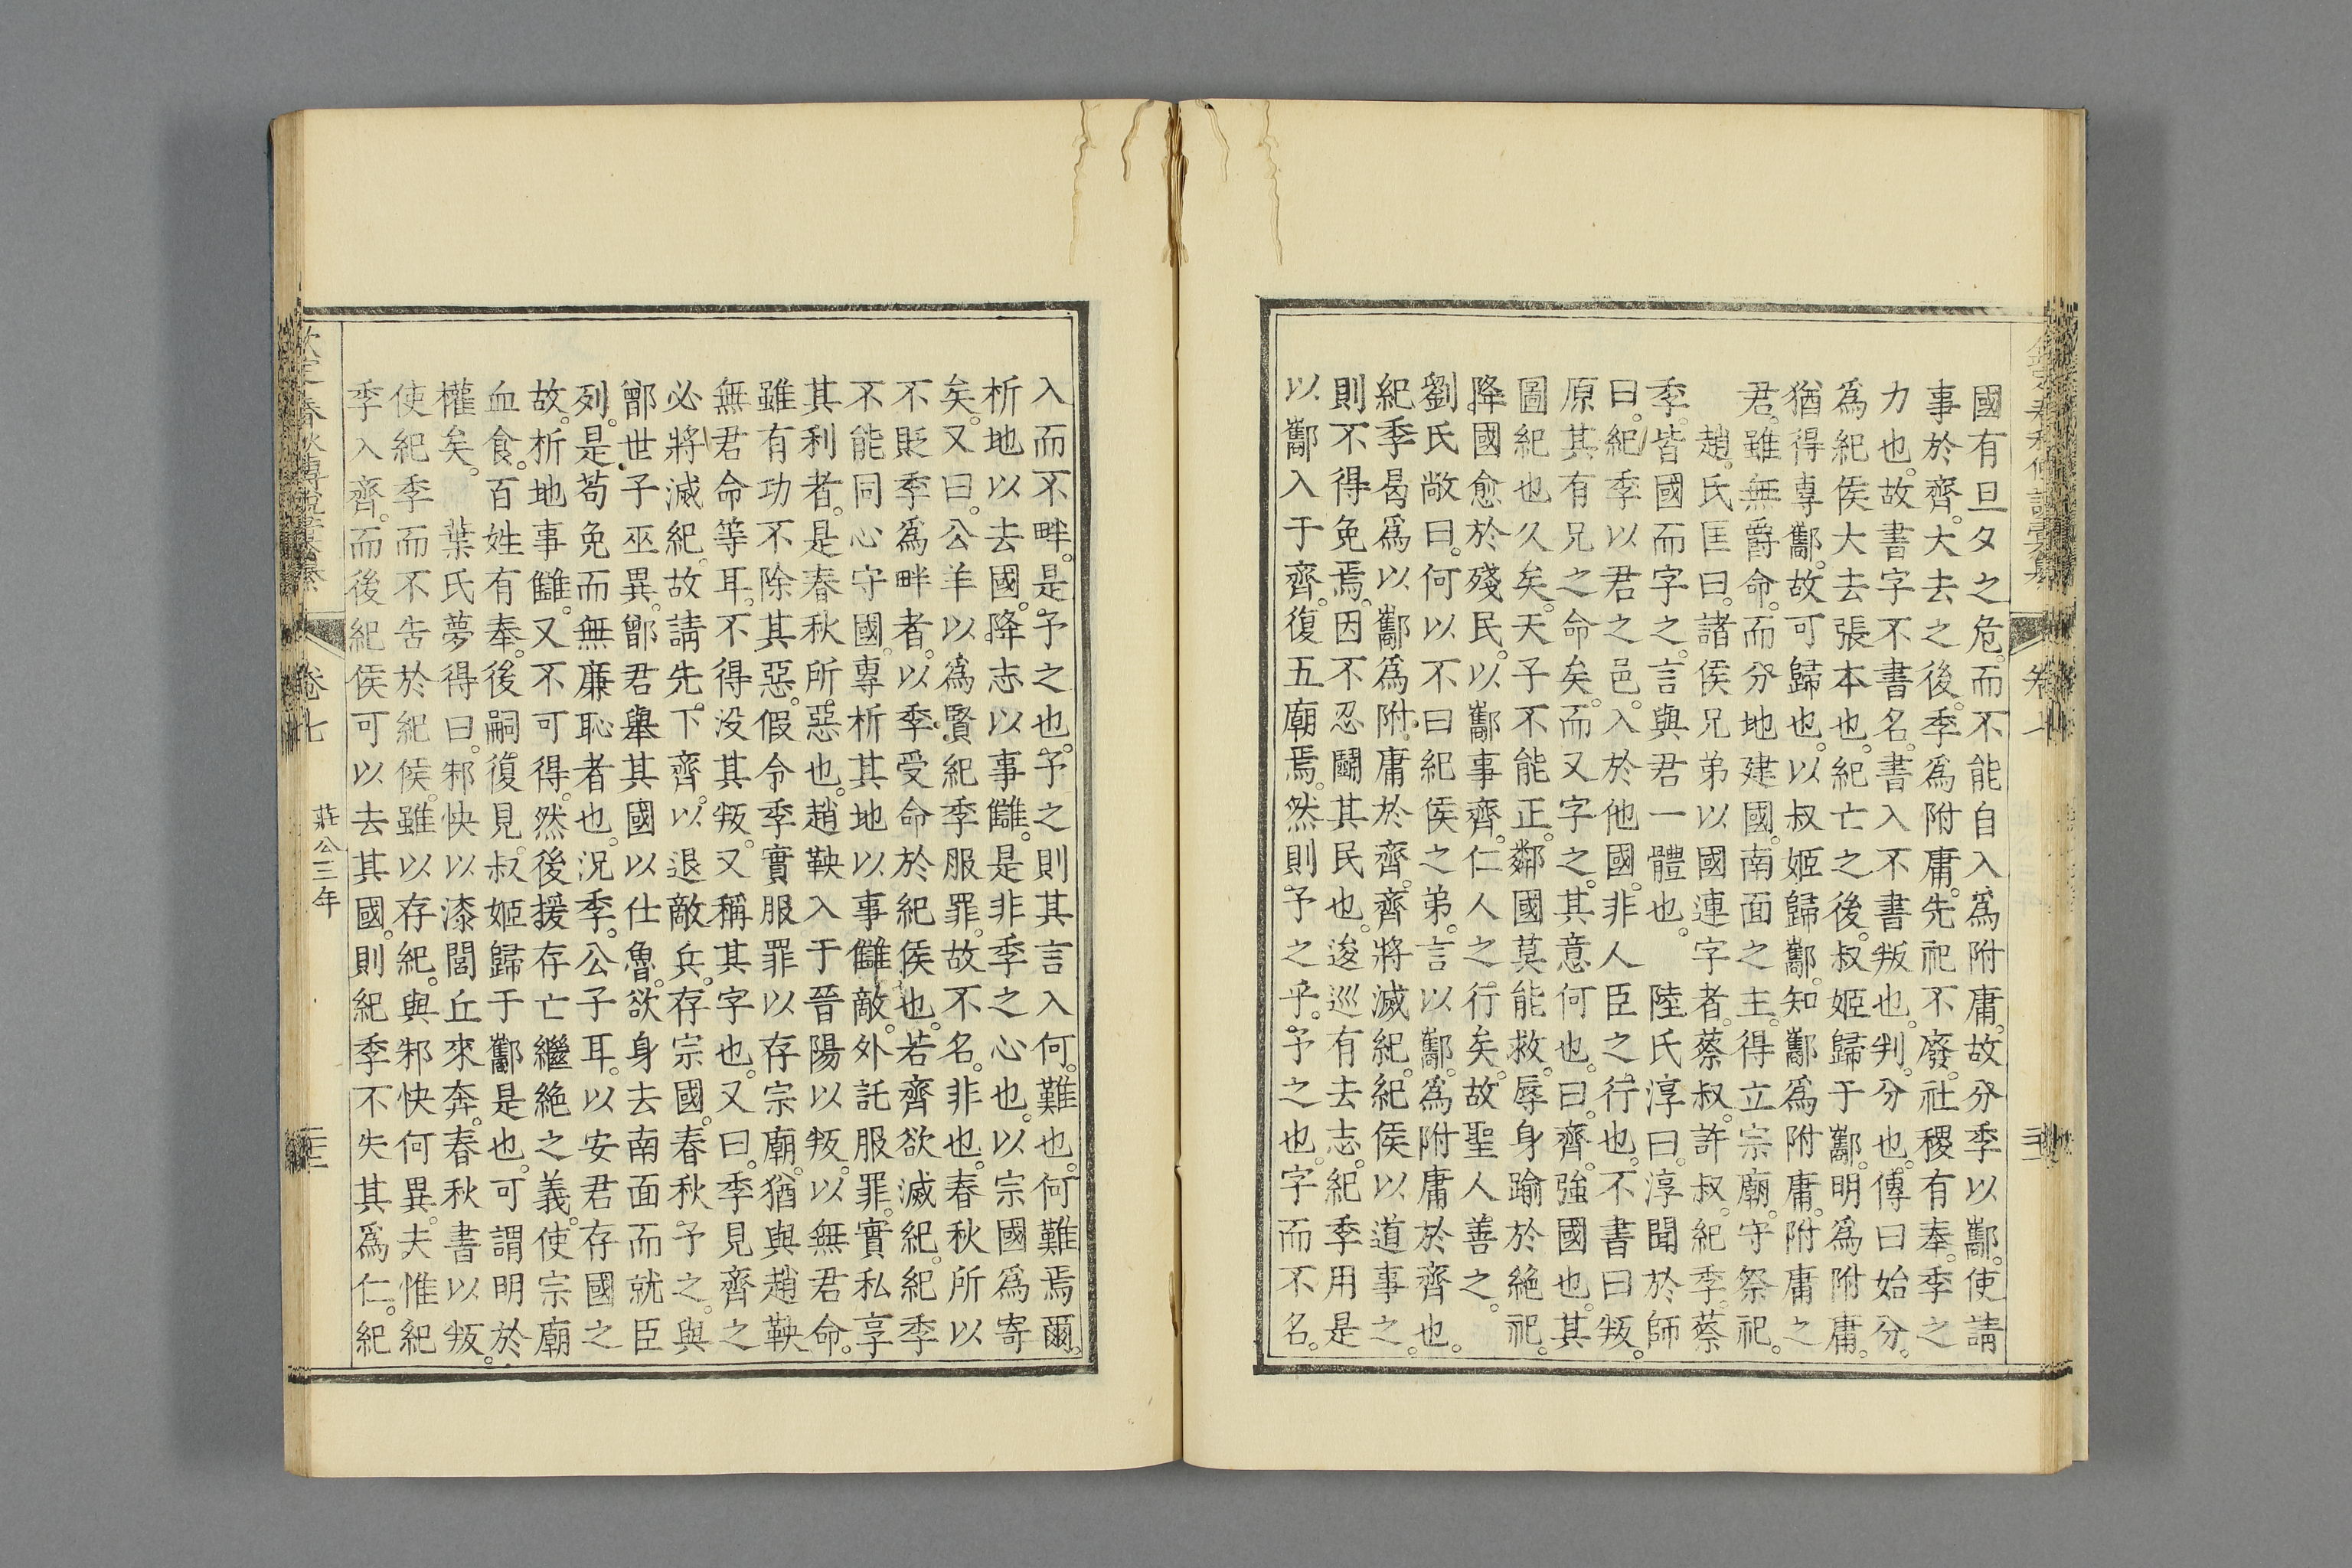 國有旦夕之危。而不能自入爲附庸。故分季以酅。使請
事於齊。大去之後。季爲附庸。先祀不廢。社稷有奉。季之
力也。故書字不書名。書入不書叛也。判。分也。傳曰始分。
爲紀侯大去張本也。紀亡之後。叔姬歸于酅。明爲附庸。
猶得專酅。故可歸也。以叔姬歸酅。知酅爲附庸。附庸之
君。雖無爵命。而分地建國。南面之主。得立宗廟。守祭祀。
趙氏匡曰。諸侯兄弟以國連字者。蔡叔。許叔。紀季。蔡
季。皆國而字之。言與君一體也。　陸氏淳曰。淳聞於師
曰。紀季以君之邑。入於他國。非人臣之行也。不書曰叛。
原其有兄之命矣。而又字之。其意何也。曰。齊。強國也。其
圖紀也久矣。天子不能正。鄰國莫能救。辱身踰於絶祀。
降國愈於殘民。以酅事齊。仁人之行矣。故聖人善之。
劉氏敞曰。何以不曰紀侯之弟。言以酅爲附庸於齊也。
紀季曷爲以酅爲附庸於齊。齊將滅紀。紀侯以道事之。
則不得免焉。因不忍鬭其民也。逡巡有去志。紀季用是
以酅入于齊。復五廟焉。然則予之乎。予之也。字而不名。
入而不畔。是予之也。予之則其言入何。難也。何難焉爾。
析地以去國。降志以事讎。是非季之心也。以宗國爲寄
矣。又曰。公羊以爲賢紀季服罪。故不名。非也。春秋所以
不貶季爲畔者。以季受命於紀侯也。若齊欲滅紀。紀季
不能同心守國。專析其地以事讎敵。外託服罪。實私享
其利者。是春秋所惡也。趙鞅入于晉陽以叛。以無君命。
雖有功不除其惡。假令季實服罪以存宗廟。猶與趙鞅
無君命等耳。不得没其叛。又稱其字也。又曰。季見齊之
必將滅紀。故請先下齊。以退敵兵。存宗國。春秋予之。與
鄫世子巫異。鄫君舉其國以仕魯。欲身去南面而就臣
列。是苟免而無廉恥者也。況季。公子耳。以安君存國之
故。析地事讎。又不可得。然後援存亡繼絶之義。使宗廟
血食。百姓有奉。後嗣復見。叔姬歸于酅是也。可謂明於
權矣。　葉氏夢得曰。邾快以漆閭丘來奔。春秋書以叛。
使紀季而不告於紀侯。雖以存紀。與邾快何異。夫惟紀
季入齊。而後紀侯可以去其國。則紀季不失其爲仁。紀
卷七
莊公三年